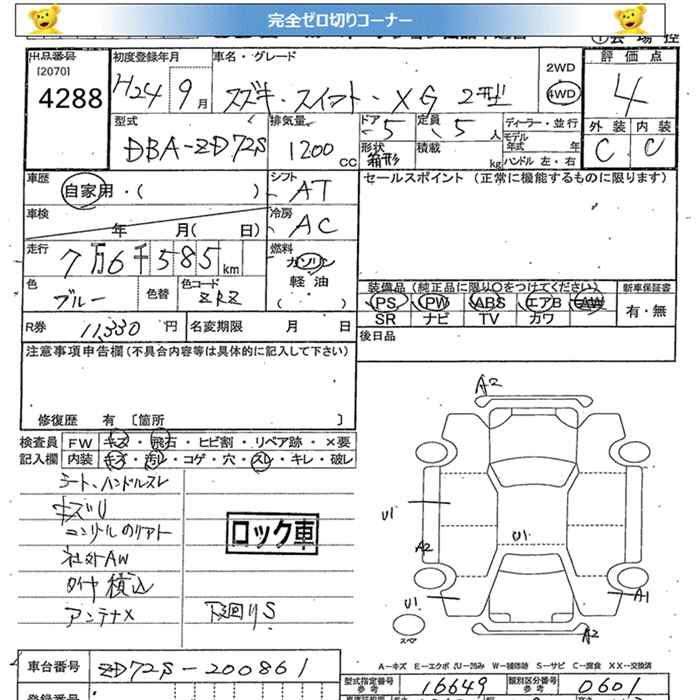 完全ゼロ切りコーナー
出品番号
[2070]
4288
初度登録年月
H24 9月
車名・グレード
スズキ・スイフト・XG 2型
2WD
4WD
評価点
4
外装 内装
C C
型式
DBA-ZD72S
排気量
1200 CC
ドア 5
定員 5人
形状 箱形
積載 kg
ディーラー・並行
モデル年式 年
ハンドル 左・右
車歴
自家用・( )
シフト
AT
セールスポイント(正常に機能するものに限ります)
車検
年 月( 日)
冷房
AC
走行
7万6千585km
燃料
ガソリン
軽油
( )
色
ブルー
色替
色コード
ZRZ
装備品(純正品に限り〇をつけてください)
PS PW ABS エアB AW
SR ナビ TV カワ
新車保証書
有・無
R券 11,330円
名変期限 月 日
後日品
注意事項申告欄(不具合内容等は具体的に記入して下さい)
修復歴 有 〔箇所 〕
検査員 FW キズ・飛石・ヒビ割・リペア跡・×要
記入欄 内装 キズ・汚レ・コゲ・穴・スレ・キレ・破レ
シート、ハンドルスレ
キズU
社外AW
タイヤ積込
アンテナX
ロック車
下廻りS
A2
U1
A2
U1
U1
A1
A2
スペア
A-キズ E-エクボ U-凹み W-補修跡 S-サビ C-腐食 XX-交換済
車台番号
ZD72S-200861
型式指定番号 参考
16649
類別区分番号 参考
0601
登録番号